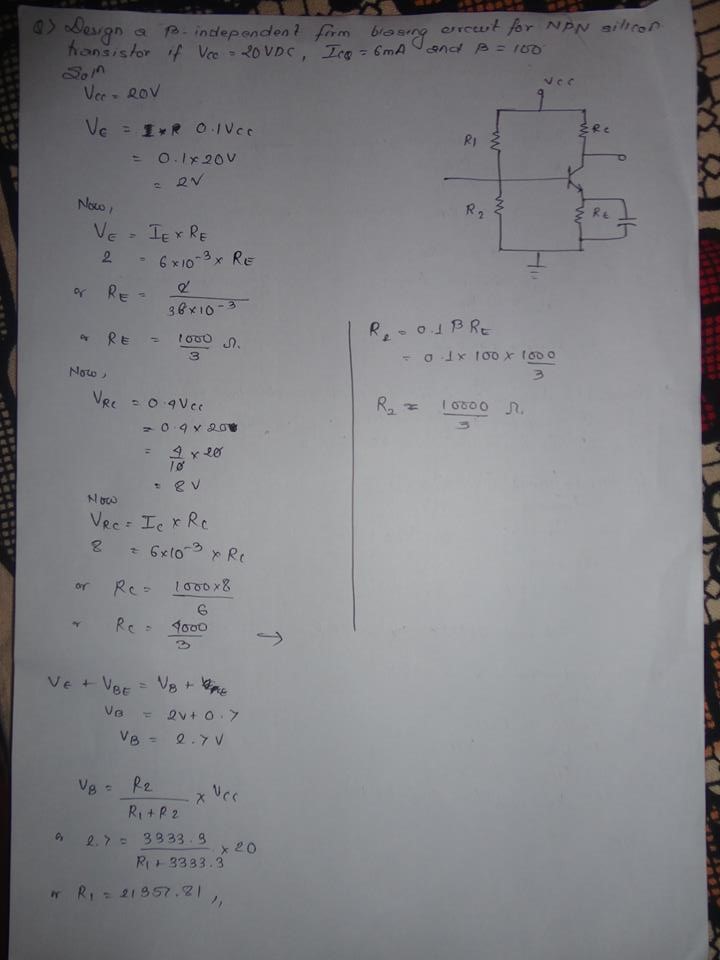 Q) Design a β-independent firm biasing circuit for NPN silicon
transistor if Vcc = 20VDC, ICQ = 6mA and β = 100
Soln
Vcc = 20V
VE = 0.1Vcc
= 0.1×20V
= 2V
Now,
VE = IE × RE
2 = 6×10-3 × RE
or RE = 2 / 36×10-3
or RE = 1000/3 Ω.
Now,
VRC = 0.4Vcc
= 0.4×20
= 4/10 × 20
= 8V
Now
VRC = IC × RC
8 = 6×10-3 × RC
or RC = 1000×8 / 6
or RC = 4000/3 →
VE + VBE = VB +
VB = 2V + 0.7
VB = 2.7V
VB = R2 / R1+R2 × Vcc
or 2.7 = 3333.3 / R1+3333.3 × 20
or R1 = 21357.81 ,,
Vcc
R1
RC
R2
RE
R2 = 0.1 β RE
= 0.1×100×1000/3
R2 = 10000/3 Ω.